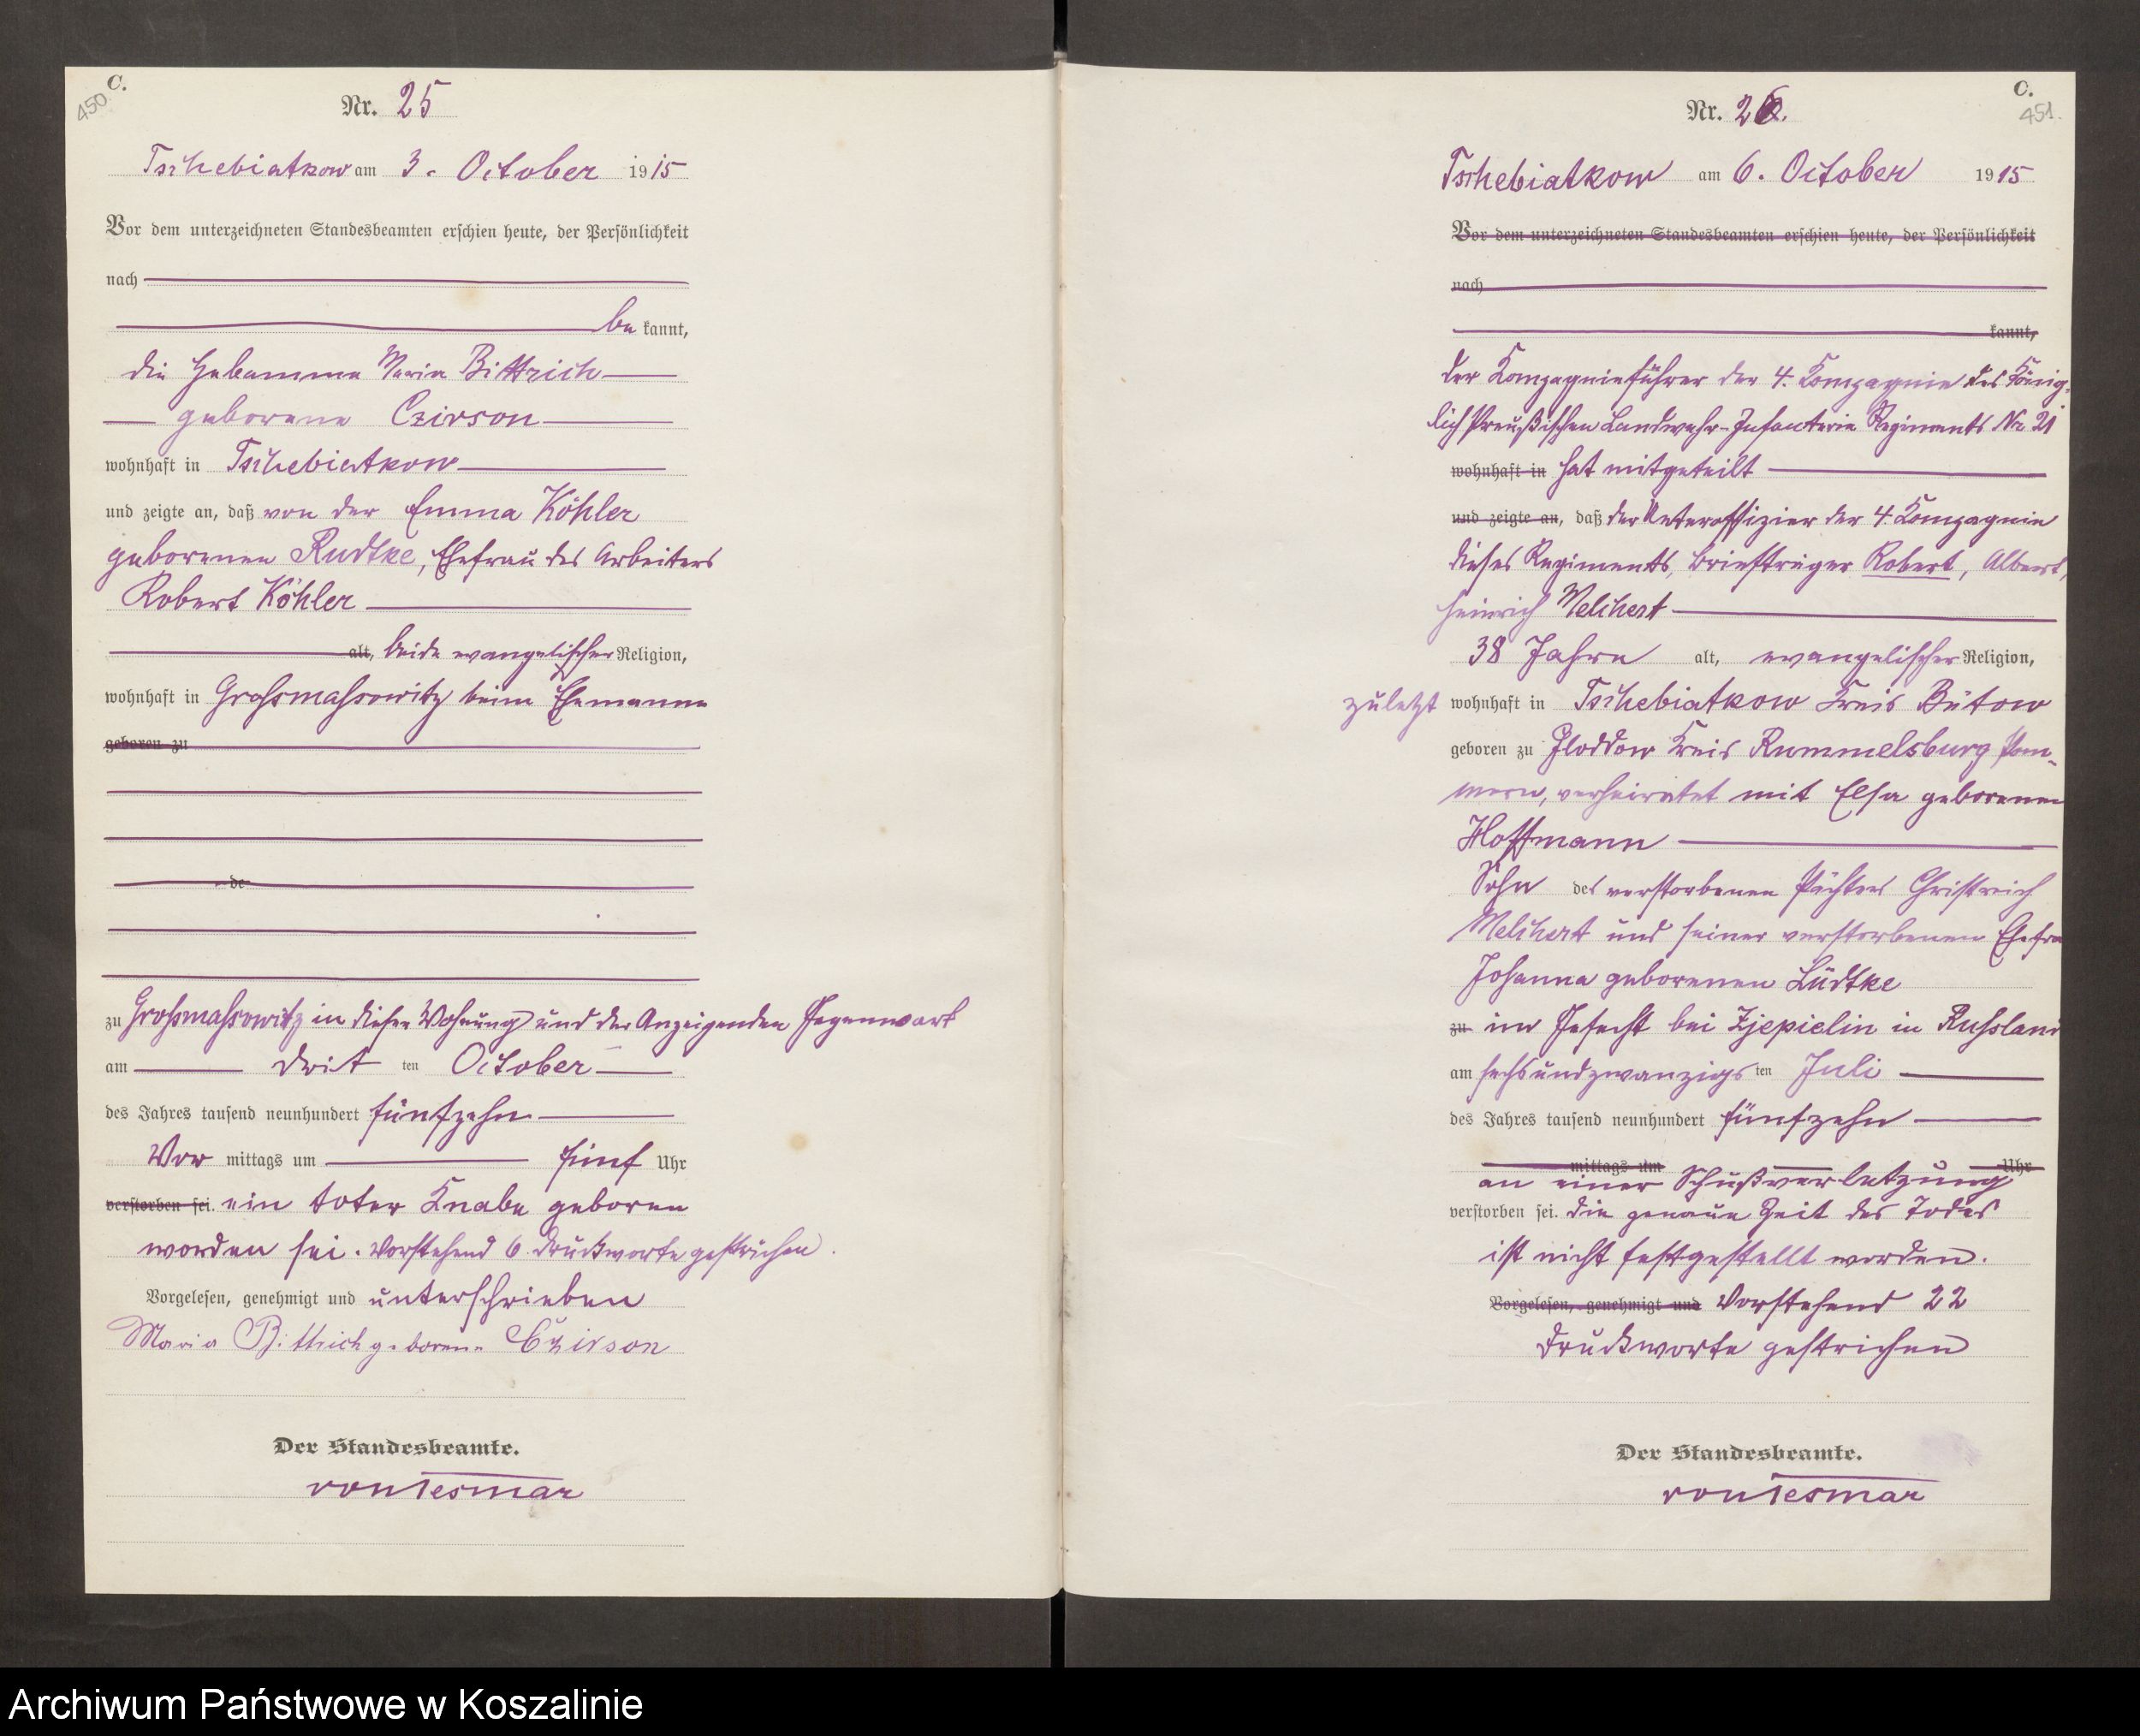 C.
450
Nr. 25
Tschebiatkow am 3. October 1915
Vor dem unterzeichneten Standesbeamten erschien heute, der Persönlichkeit
nach
be kannt,
die Hebamme Maria Bittrich
geborene Czirson
wohnhaft in Tschebiatkow
und zeigte an, daß von der Emma Köhler
geborenen Rudtke, Ehefrau des Arbeiters
Robert Köhler
alt, beide evangelischer Religion,
wohnhaft in Grossmassowitz beim Ehemanne
geboren zu
de
zu Grossmassowitz in dieser Wohnung und der Anzeigenden Gegenwart
am dritten October
des Jahres tausend neunhundert fünfzehn
Vor mittags um fünf Uhr
verstorben sei. ein toter Knabe geboren
worden sei. Vorstehend 6 Druckworte gestrichen.
Vorgelesen, genehmigt und unterschrieben
Maria Bittrich geborene Czirson
Der Standesbeamte.
von Tesmar
C.
451.
Nr. 26.
Tschebiatkow am 6. October 1915
Vor dem unterzeichneten Standesbeamten erschien heute, der Persönlichkeit
nach
kannt,
der Kompagnieführer der 4. Kompagnie des König-
lich Preußischen Landwehr-Infanterie Regiments Nr 21
wohnhaft in hat mitgeteilt
und zeigte an, daß der Unteroffizier der 4. Kompagnie
dieses Regiments, Briefträger Robert, Albert,
Heinrich Melchert
38 Jahre alt, evangelischer Religion,
zuletzt wohnhaft in Tschebiatkow Kreis Bütow
geboren zu Floddow Kreis Rummelsburg Pom-
mern, verheiratet mit Elsa geborenen
Hoffmann
Sohn des verstorbenen Pächters Christreich
Melchert und seiner verstorbenen Ehefra
Johanna geborenen Lüdtke
zu im Gefecht bei Zjepielin in Russland
am sechsundzwanzigsten Juli
des Jahres tausend neunhundert fünfzehn
mittags um Uhr
an einer Schußverletzung
verstorben sei. Die genaue Zeit des Todes
ist nicht festgestellt worden.
Vorgelesen, genehmigt und Vorstehend 22
Druckworte gestrichen
Der Standesbeamte.
von Tesmar
Archiwum Państwowe w Koszalinie